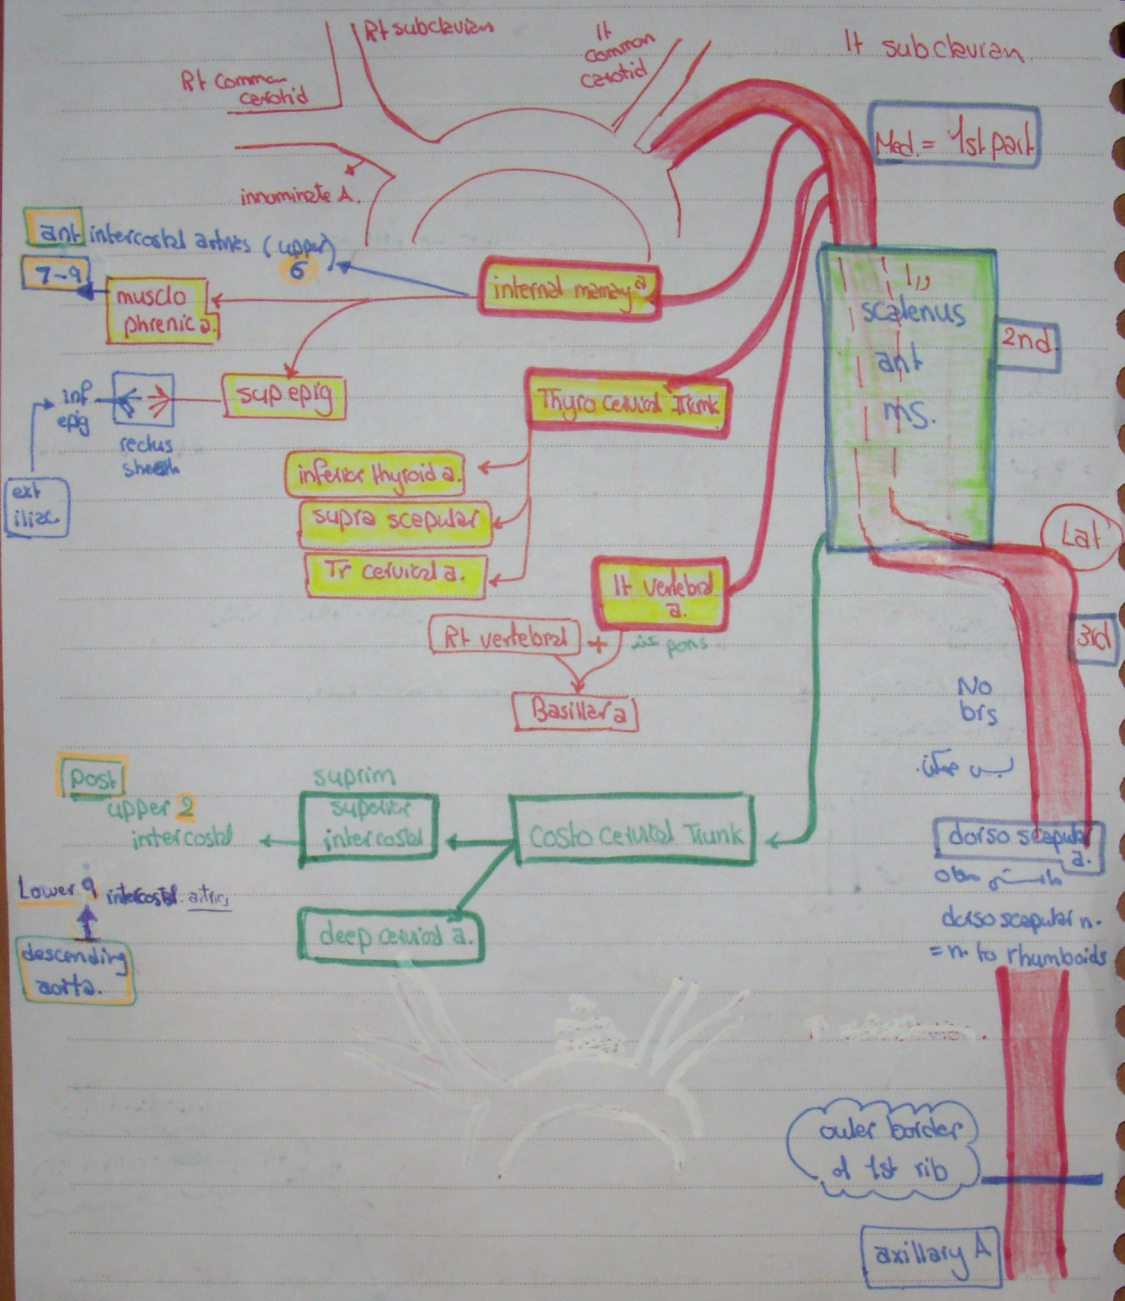 Rt subclavian
lt
common
carotid
lt subclavian
Rt common
carotid
Med. = 1st part
innominate A.
ant intercostal artries (upper)
6
7-9
musclo
phrenic a.
internal mamay a
scalenus
ant
ms.
2nd
sup epig
inf
epig
rectus
sheath
ext
iliac
Thyro cervical Trunk
inferior thyroid a.
supra scapular
Tr cervical a.
Lat
lt vertebral
a.
Rt vertebral
+
pons
Basillar a
3rd
No
brs
بس ممكن
post
upper 2
intercostal
suprim
superior
intercostal
Costo cervical Trunk
dorso scapular
a.
Lower 9 intercostal artries
deep cervical a.
descending
aorta.
dorso scapular n.
= n. to rhomboids
outer border
of 1st rib
axillary A